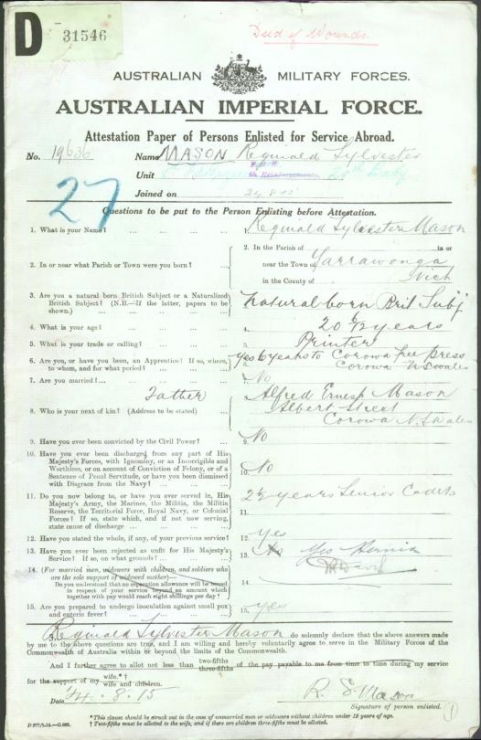 D 31546
Died of Wounds
AUSTRALIAN MILITARY FORCES.
AUSTRALIAN IMPERIAL FORCE.
Attestation Paper of Persons Enlisted for Service Abroad.
No. 19636 Name MASON Reginald Sylvester
Unit
Joined on 24 8 15
27
Questions to be put to the Person Enlisting before Attestation.
1. What is your Name? ... 1. Reginald Sylvester Mason
2. In or near what Parish or Town were you born? ... 2. In the Parish of in or
near the Town of Yarrawonga
in the County of Vict
3. Are you a natural born British Subject or a Naturalized
British Subject? (N.B.—If the latter, papers to be
shown.) ... 3. Natural born Brit Subj
4. What is your age? ... 4. 20 years
5. What is your trade or calling? ... 5. Printer
6. Are you, or have you been, an Apprentice? If so, where,
to whom, and for what period? 6. yes 6 years to Corowa Free Press
Corowa N S Wales
7. Are you married? ... 7. No
Father
8. Who is your next of kin? (Address to be stated) 8. Alfred Ernest Mason
Albert Street
Corowa N. S. Wales
9. Have you ever been convicted by the Civil Power? 9. No
10. Have you ever been discharged from any part of His
Majesty's Forces, with Ignominy, or as Incorrigible and
Worthless, or on account of Conviction of Felony, or of a
Sentence of Penal Servitude, or have you been dismissed
with Disgrace from the Navy? 10. No
11. Do you now belong to, or have you ever served in, His
Majesty's Army, the Marines, the Militia, the Militia
Reserve, the Territorial Force, Royal Navy, or Colonial
Forces? If so, state which, and if not now serving,
state cause of discharge ... 11. 2½ years Senior Cadets
12. Have you stated the whole, if any, of your previous service? 12. yes
13. Have you ever been rejected as unfit for His Majesty's
Service? If so, on what grounds? 13. Yes Hernia
14. (For married men, widowers with children, and soldiers who
are the sole support of widowed mother—
Do you understand that no separation allowance will be issued
in respect of your service beyond an amount which
together with pay would reach eight shillings per day? 14.
15. Are you prepared to undergo inoculation against small pox
and enteric fever? 15. yes
I, Reginald Sylvester Mason do solemnly declare that the above answers made
by me to the above questions are true, and I am willing and hereby voluntarily agree to serve in the Military Forces of the
Commonwealth of Australia within or beyond the limits of the Commonwealth.
And I further agree to allot not less than two-fifths three-fifths of the pay payable to me from time to time during my service
for the support of my wife.*† wife and children.
Date 24.8.15 R. S Mason
Signature of person enlisted.
*This clause should be struck out in the case of unmarried men or widowers without children under 18 years of age.
†Two-fifths must be allotted to the wife, and if there are children three-fifths must be allotted.